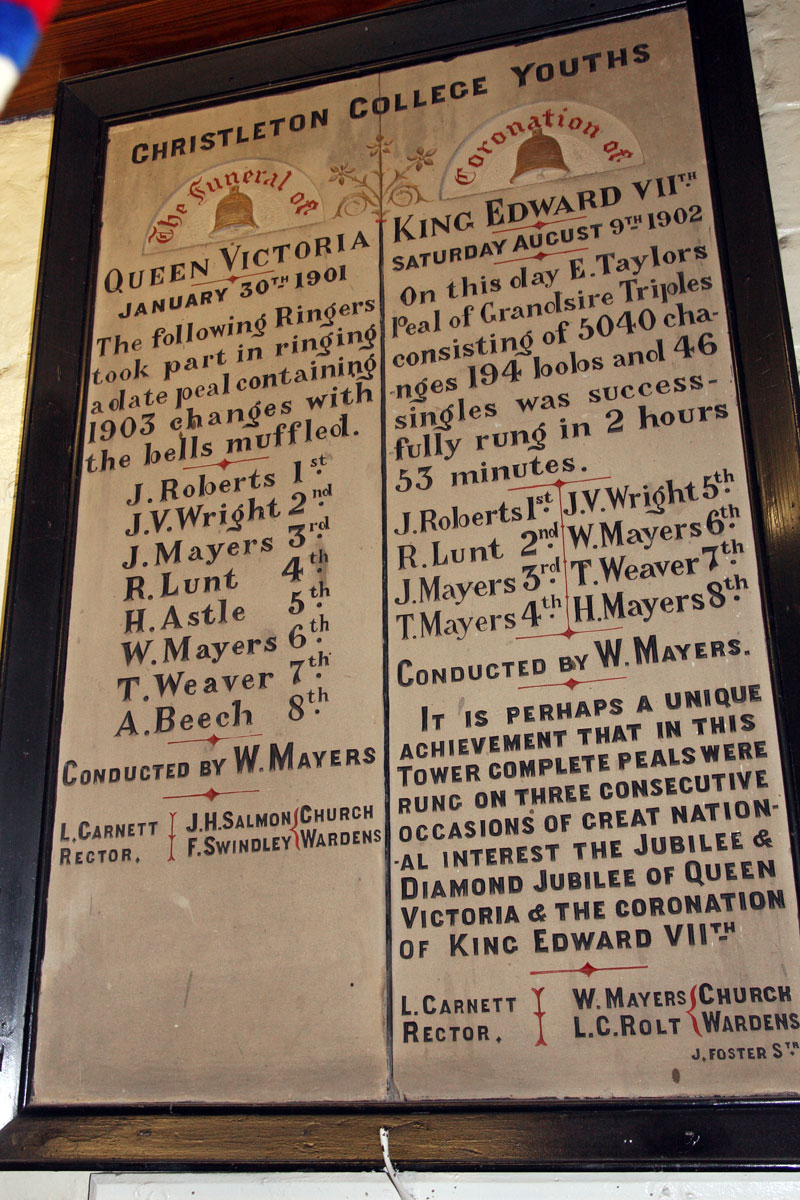 CHRISTLETON COLLEGE YOUTHS
The Funeral of
QUEEN VICTORIA
JANUARY 30TH 1901
The following Ringers
took part in ringing
a date peal containing
1903 changes with
the bells muffled.
J. Roberts 1st
J.V. Wright 2nd
J. Mayers 3rd
R. Lunt 4th
H. Astle 5th
W. Mayers 6th
T. Weaver 7th
A. Beech 8th
CONDUCTED BY W. MAYERS
L. CARNETT RECTOR.
J.H. SALMON F. SWINDLEY CHURCH WARDENS
Coronation of
KING EDWARD VIITH
SATURDAY AUGUST 9TH 1902
On this day E. Taylors
Peal of Grandsire Triples
consisting of 5040 cha-
-nges 194 bobs and 46
singles was success-
fully rung in 2 hours
53 minutes.
J. Roberts 1st J.V. Wright 5th
R. Lunt 2nd W. Mayers 6th
J. Mayers 3rd T. Weaver 7th
T. Mayers 4th H. Mayers 8th
CONDUCTED BY W. MAYERS.
IT IS PERHAPS A UNIQUE
ACHIEVEMENT THAT IN THIS
TOWER COMPLETE PEALS WERE
RUNG ON THREE CONSECUTIVE
OCCASIONS OF GREAT NATION-
-AL INTEREST THE JUBILEE &
DIAMOND JUBILEE OF QUEEN
VICTORIA & THE CORONATION
OF KING EDWARD VIITH
L. CARNETT W. MAYERS CHURCH
RECTOR. L.C. ROLT WARDENS
J. FOSTER STR.